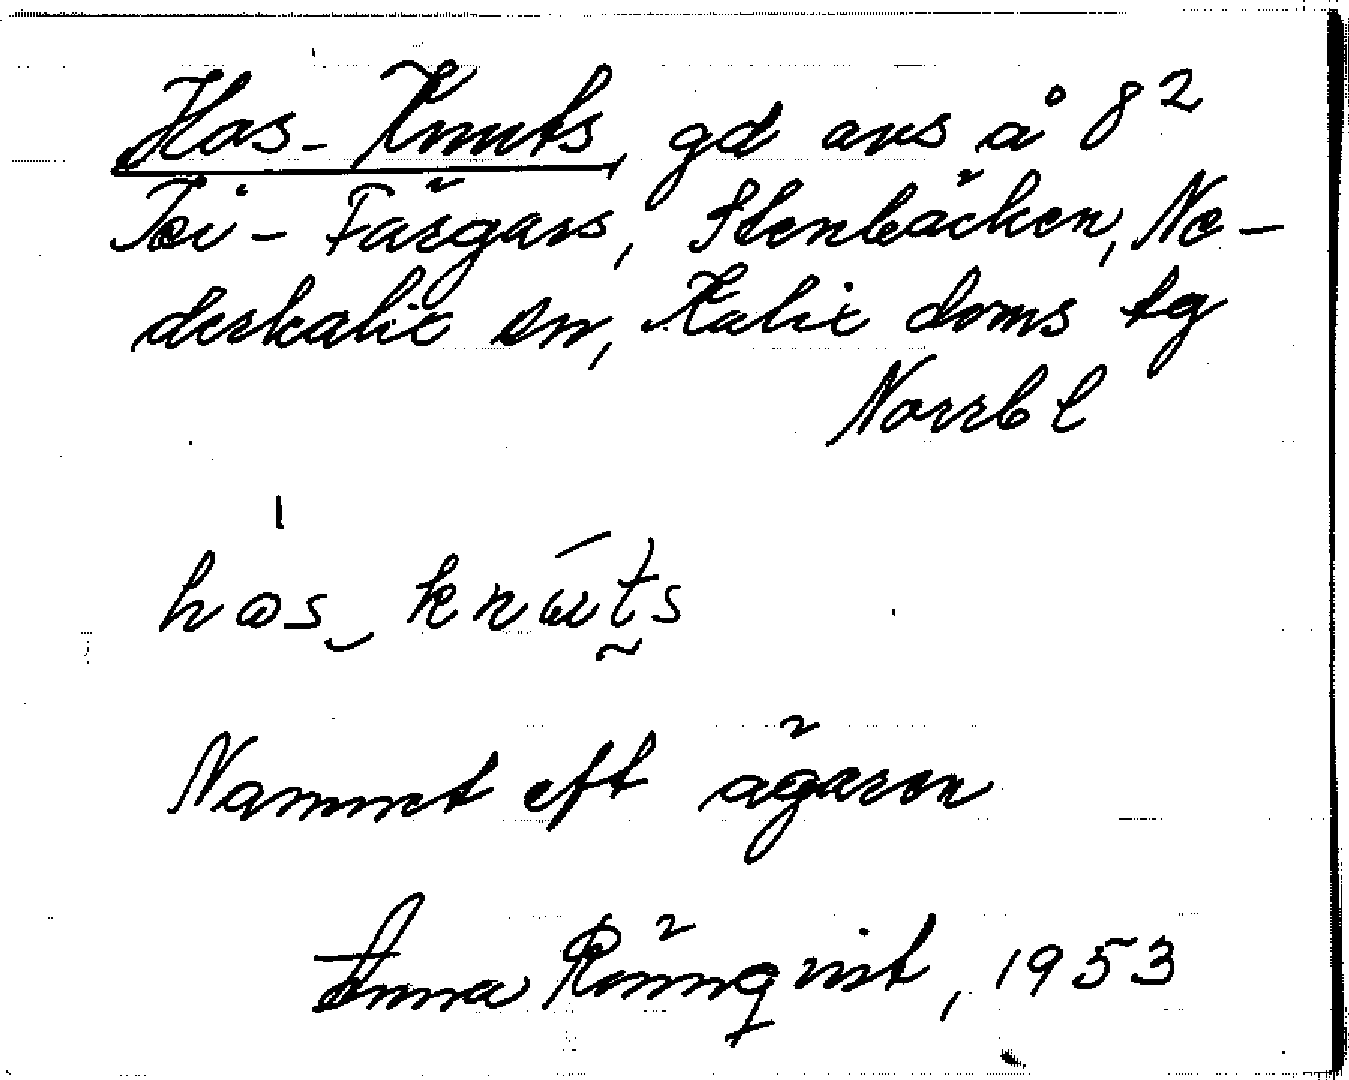 Has-Knuts, gd avs å 8²
Toi-Färgars, Stenbäcken, Ne-
derkalix sn, Kalix doms tg
Norrb l
has knuts
Namnet eft ägaren
Anna Rönnqvist, 1953